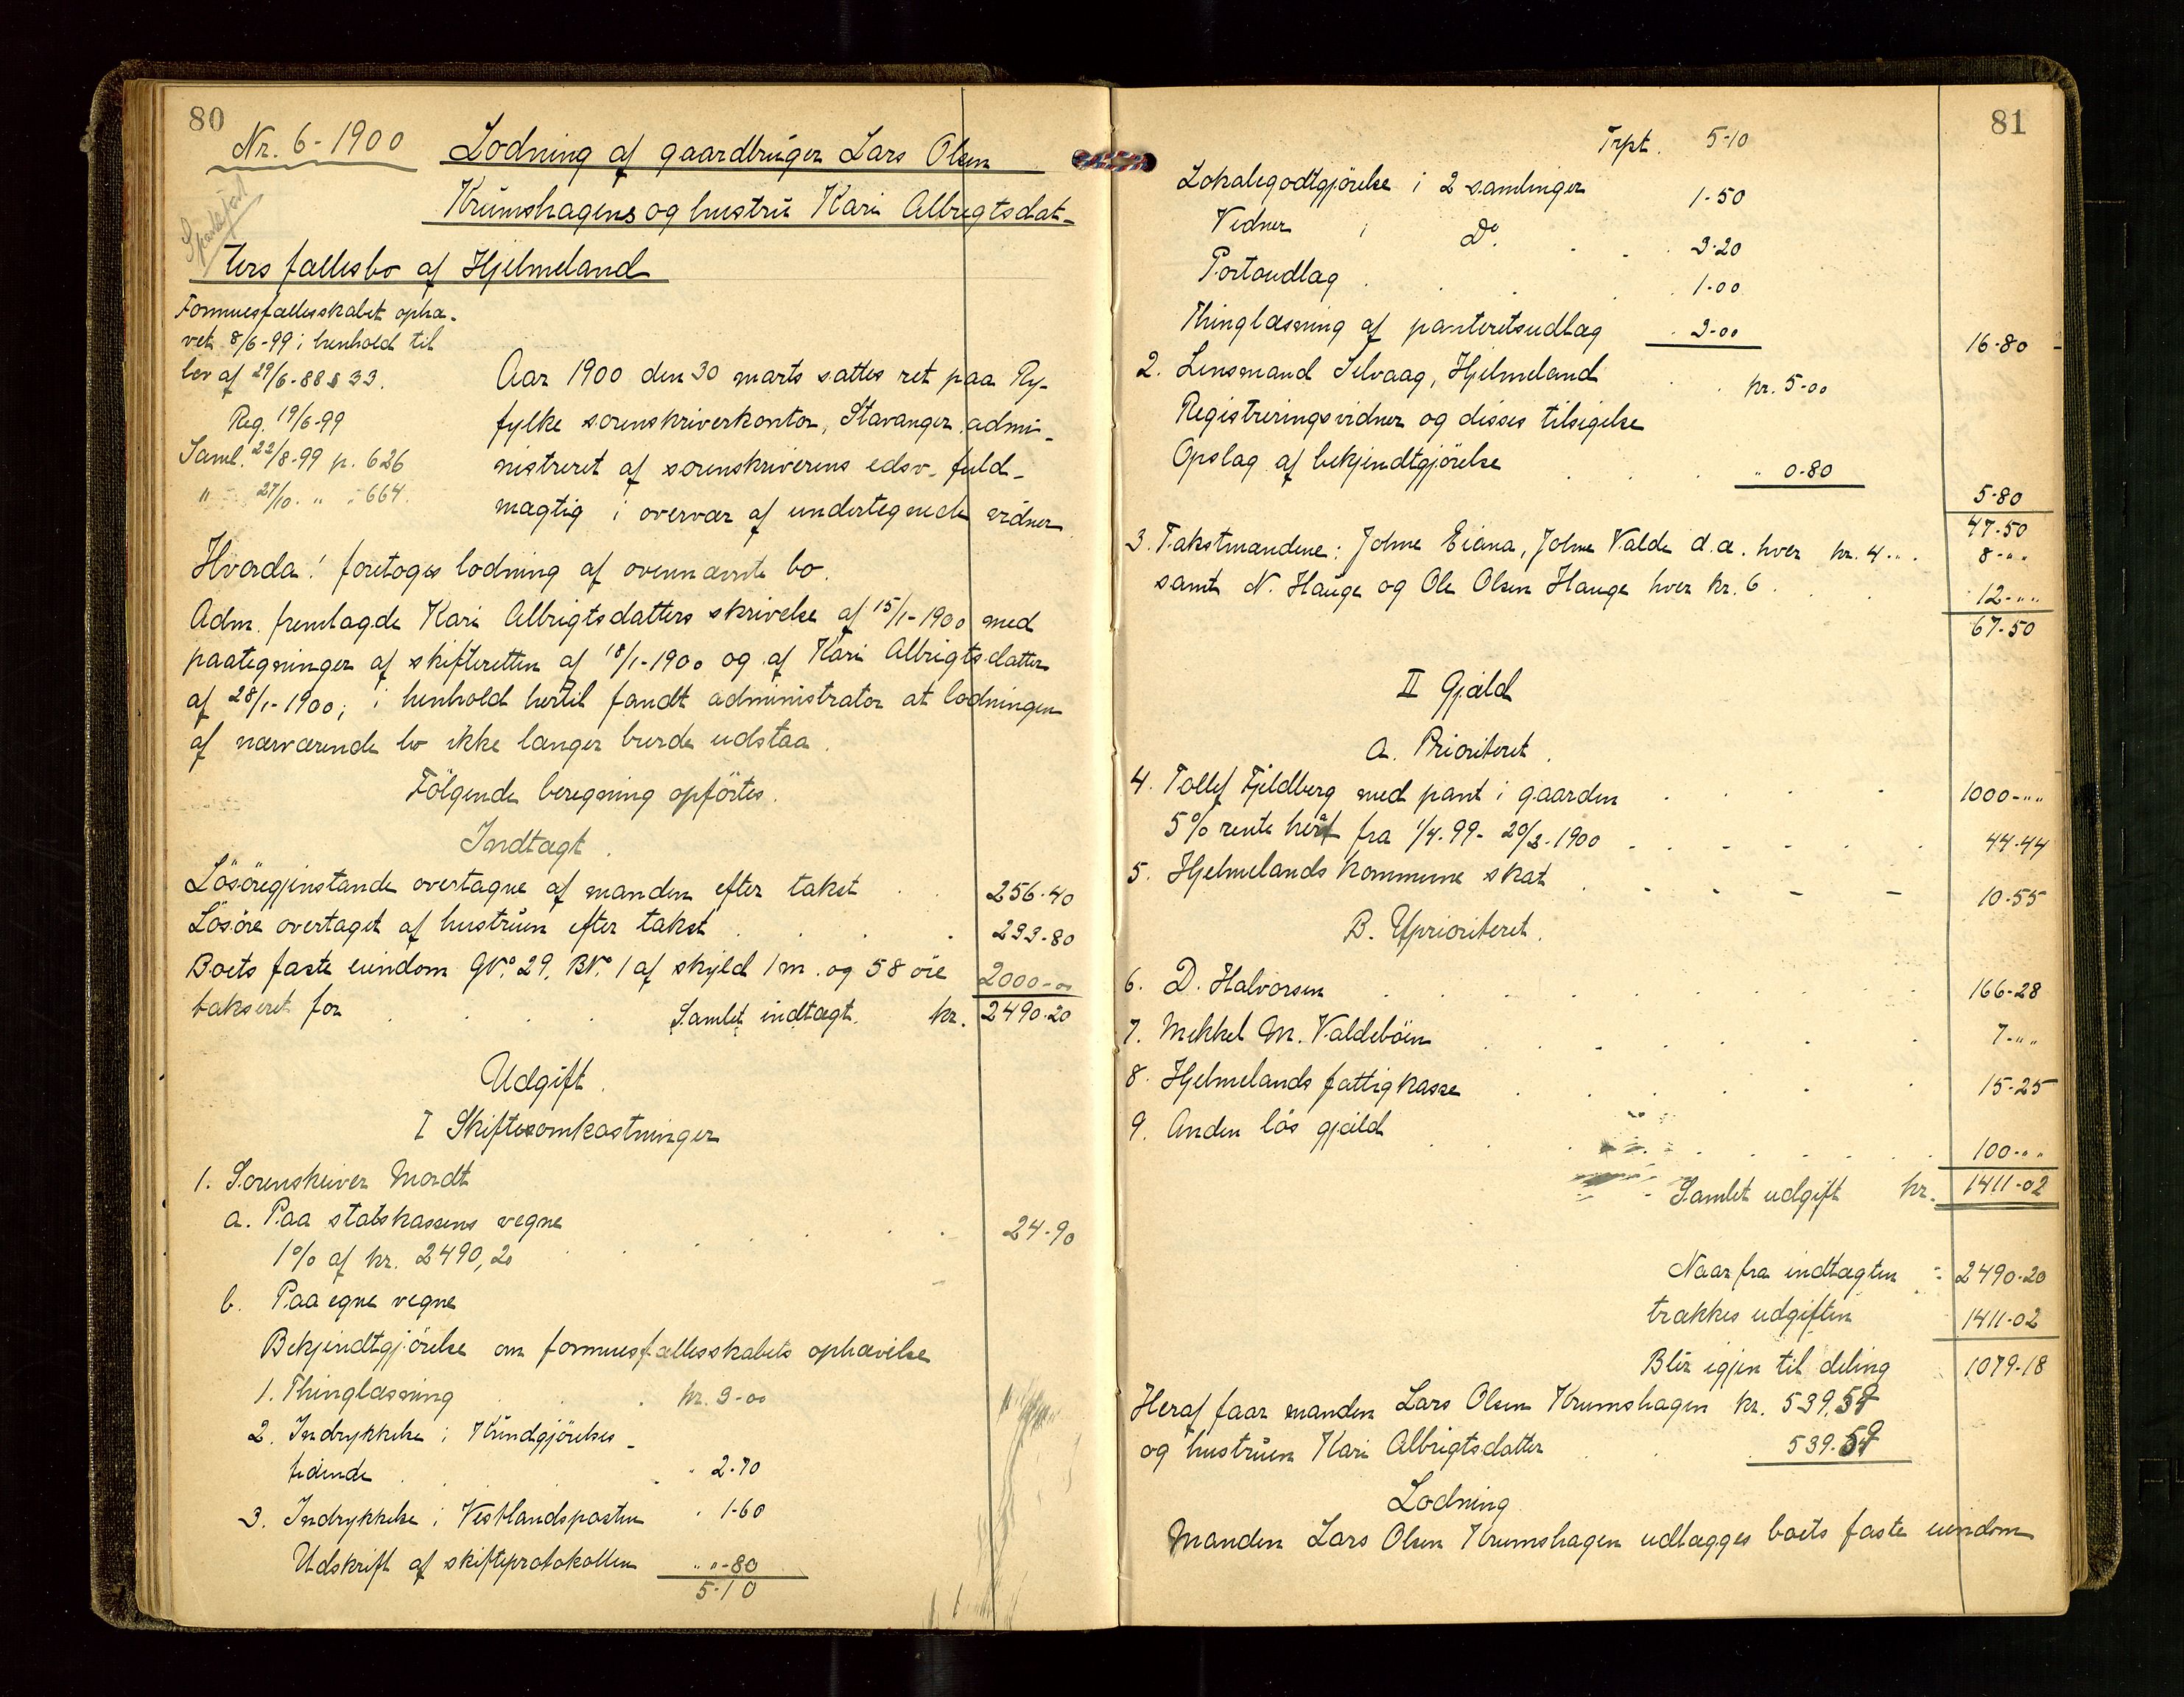 80
Nr. 6-1900 Lodning af gaardbruger Lars Olsen
Krumshagens og hustru Kari Albrigtsdat-
ters fællesbo af Hjelmeland
Formuesfællesskabet ophæ-
vet 8/6-99 i henhold til
lov af 29/6-88 § 33.
Reg. 19/6-99
Saml. 22/8-99 p. 626
" 27/10 - " - 664.
Aar 1900 den 30 marts sattes ret paa Ry-
fylke sorenskriverkontor, Stavanger, admi-
nistreret af sorenskriverens edsv. fuld-
mægtig i overvær af undertegnede vidner
Hvorda! foretoges lodning af ovennævnte bo.
Adm. fremlagde Kari Albrigtsdatters skrivelse af 15/1-1900 med
paategninger af skifteretten af 18/1-1900 og af Kari Albrigtsdatter
af 28/1-1900; i henhold hertil fandt administrator at lodningen
af nærværende bo ikke længer burde udstaa.
Følgende beregning opförtes.
Indtægt.
Lösöregjenstande overtagne af manden efter takst . . 256-40
Lösöre overtaget af hustruen efter takst . . . 233-80
Boets faste eiendom GNo. 29, BNo. 1 af skyld 1 m. og 58 öre 2000-00
takseret for . . . . Samlet indtægt. kr. 2490-20
Udgift.
I Skiftesomkostninger
1. Sorenskriver Mordt
a. Paa statskassens vegne
1% af kr. 2490,20 . . . . . . 24-90
b. Paa egne vegne
Bekjendtgjörelse om formuesfællesskabets ophævelse
1. Thinglæsning . . . kr. 3-00
2. Indrykkelse i Kundgjörelses-
tidende . . . " 2-70
3. Indrykkelse i Vestlandsposten " 1-60
Udskrift af skifteprotokollen " "-80
5-10
81
Trpt. 5-10
Lokalegodtgjörelse i 2 samlinger 1-50
Vidner i Do. . . 3-20
Portoudlag . . . . 1-00
Thinglæsning af panteretsudlæg . 3-00 16-80
2. Lensmand Selvaag, Hjelmeland . . kr. 5-00
Registreringsvidner og disses tilsigelse
Opslag af bekjendtgjörelse . . . " 0-80 5-80
47-50
3. Takstmændene: Johne Eiane, Johne Valde d.æ. hver kr. 4-". 8-""
samt N. Hauge og Ole Olsen Hauge hver kr. 6 . . . 12-""
67-50
II Gjæld
A. Prioriteret.
4. Tollef Fjeldberg med pant i gaarden . . . . 1000-""
5% rente heraf fra 1/4-99 - 20/2-1900 . . . . . . 44-44
5. Hjelmelands kommune skat . . . . . 10-55
B. Uprioriteret.
6. D. Halvorsen . . . . . . . . 166-28
7. Mikkel M. Valdeböen . . . . . . 7-""
8. Hjelmelands fattigkasse . . . . . 15-25
9. Anden lös gjæld . . . . . . . . 100-""
Samlet udgift kr. 1411-02
Naar fra indtægten 2490-20
trækkes udgiften 1411-02
Blir igjen til deling 1079-18
Heraf faar manden Lars Olsen Krumshagen kr. 539.59
og hustruen Kari Albrigtsdatter . . 539.59
Lodning
Manden Lars Olsen Krumshagen udlægges boets faste eiendom